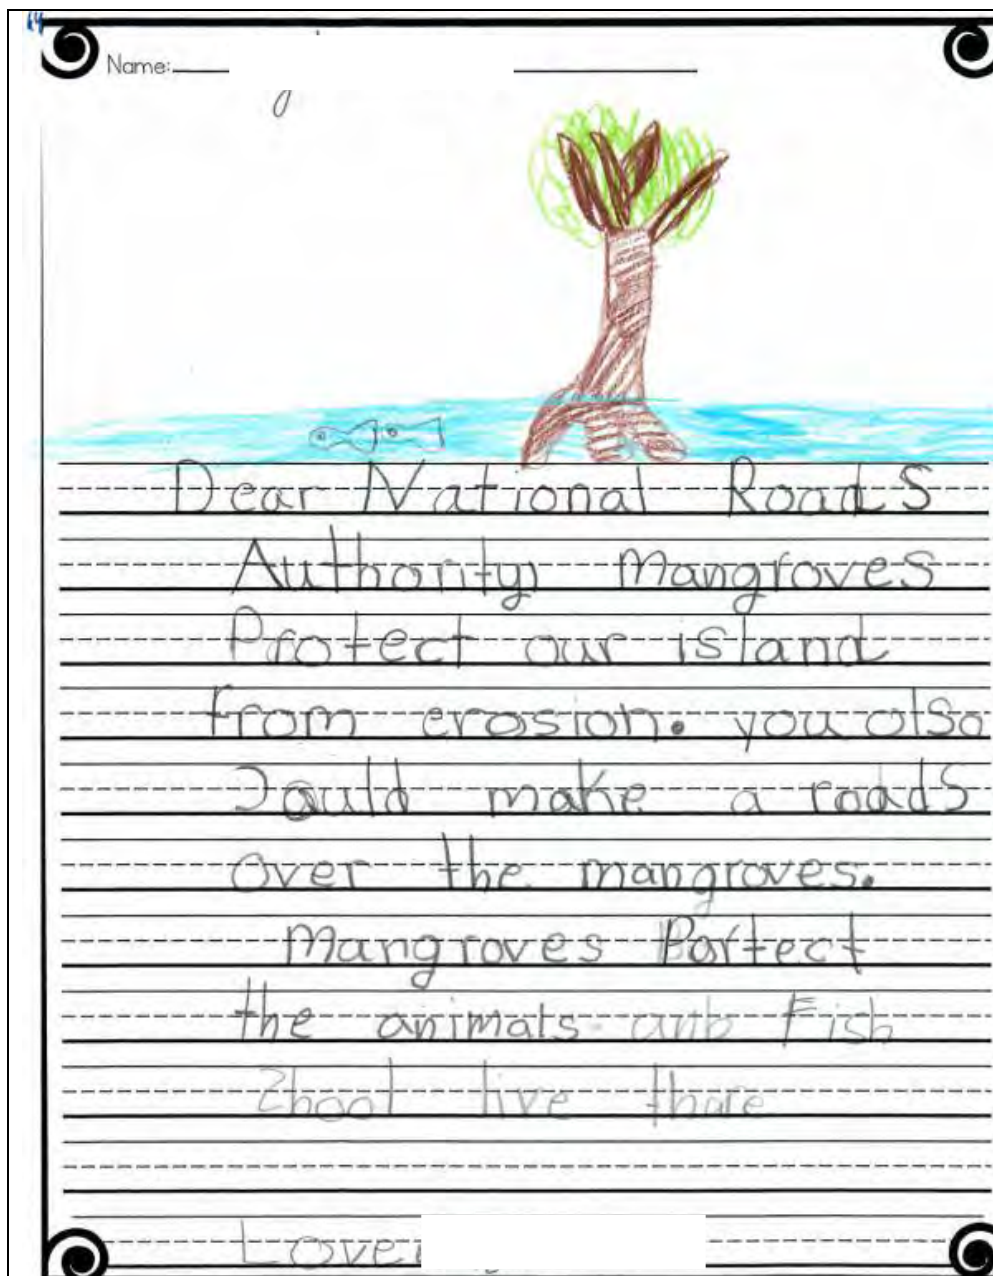 Name:
Dear National Roads
Authority, Mangroves
Protect our island
from erosion. you olso
Could make a roads
over the mangroves.
Mangroves Portect
the animals anb Fish
live thare
Love,